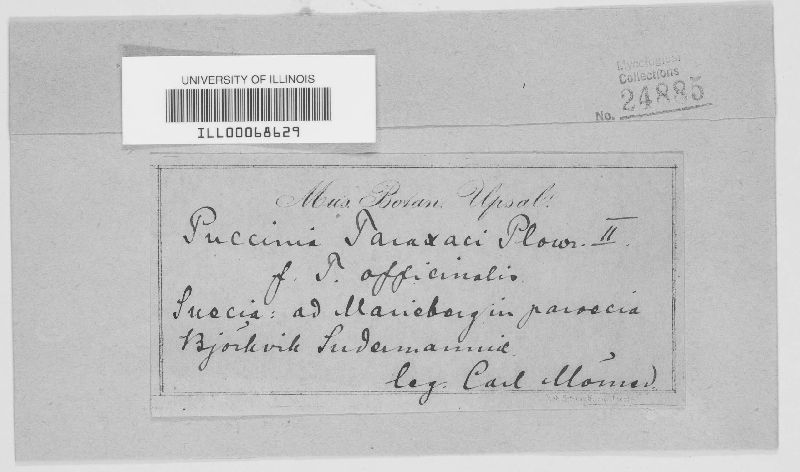 UNIVERSITY OF ILLINOIS
ILL00068629
Mycological
Collections
No. 24885
Mus. Botan. Upsal.
Puccinia Taraxaci Plowr. II.
f. T. officinalis
Suecia: ad Marieborg in paroecia
Björkvik Sudermanniæ
leg. Carl Mörner.